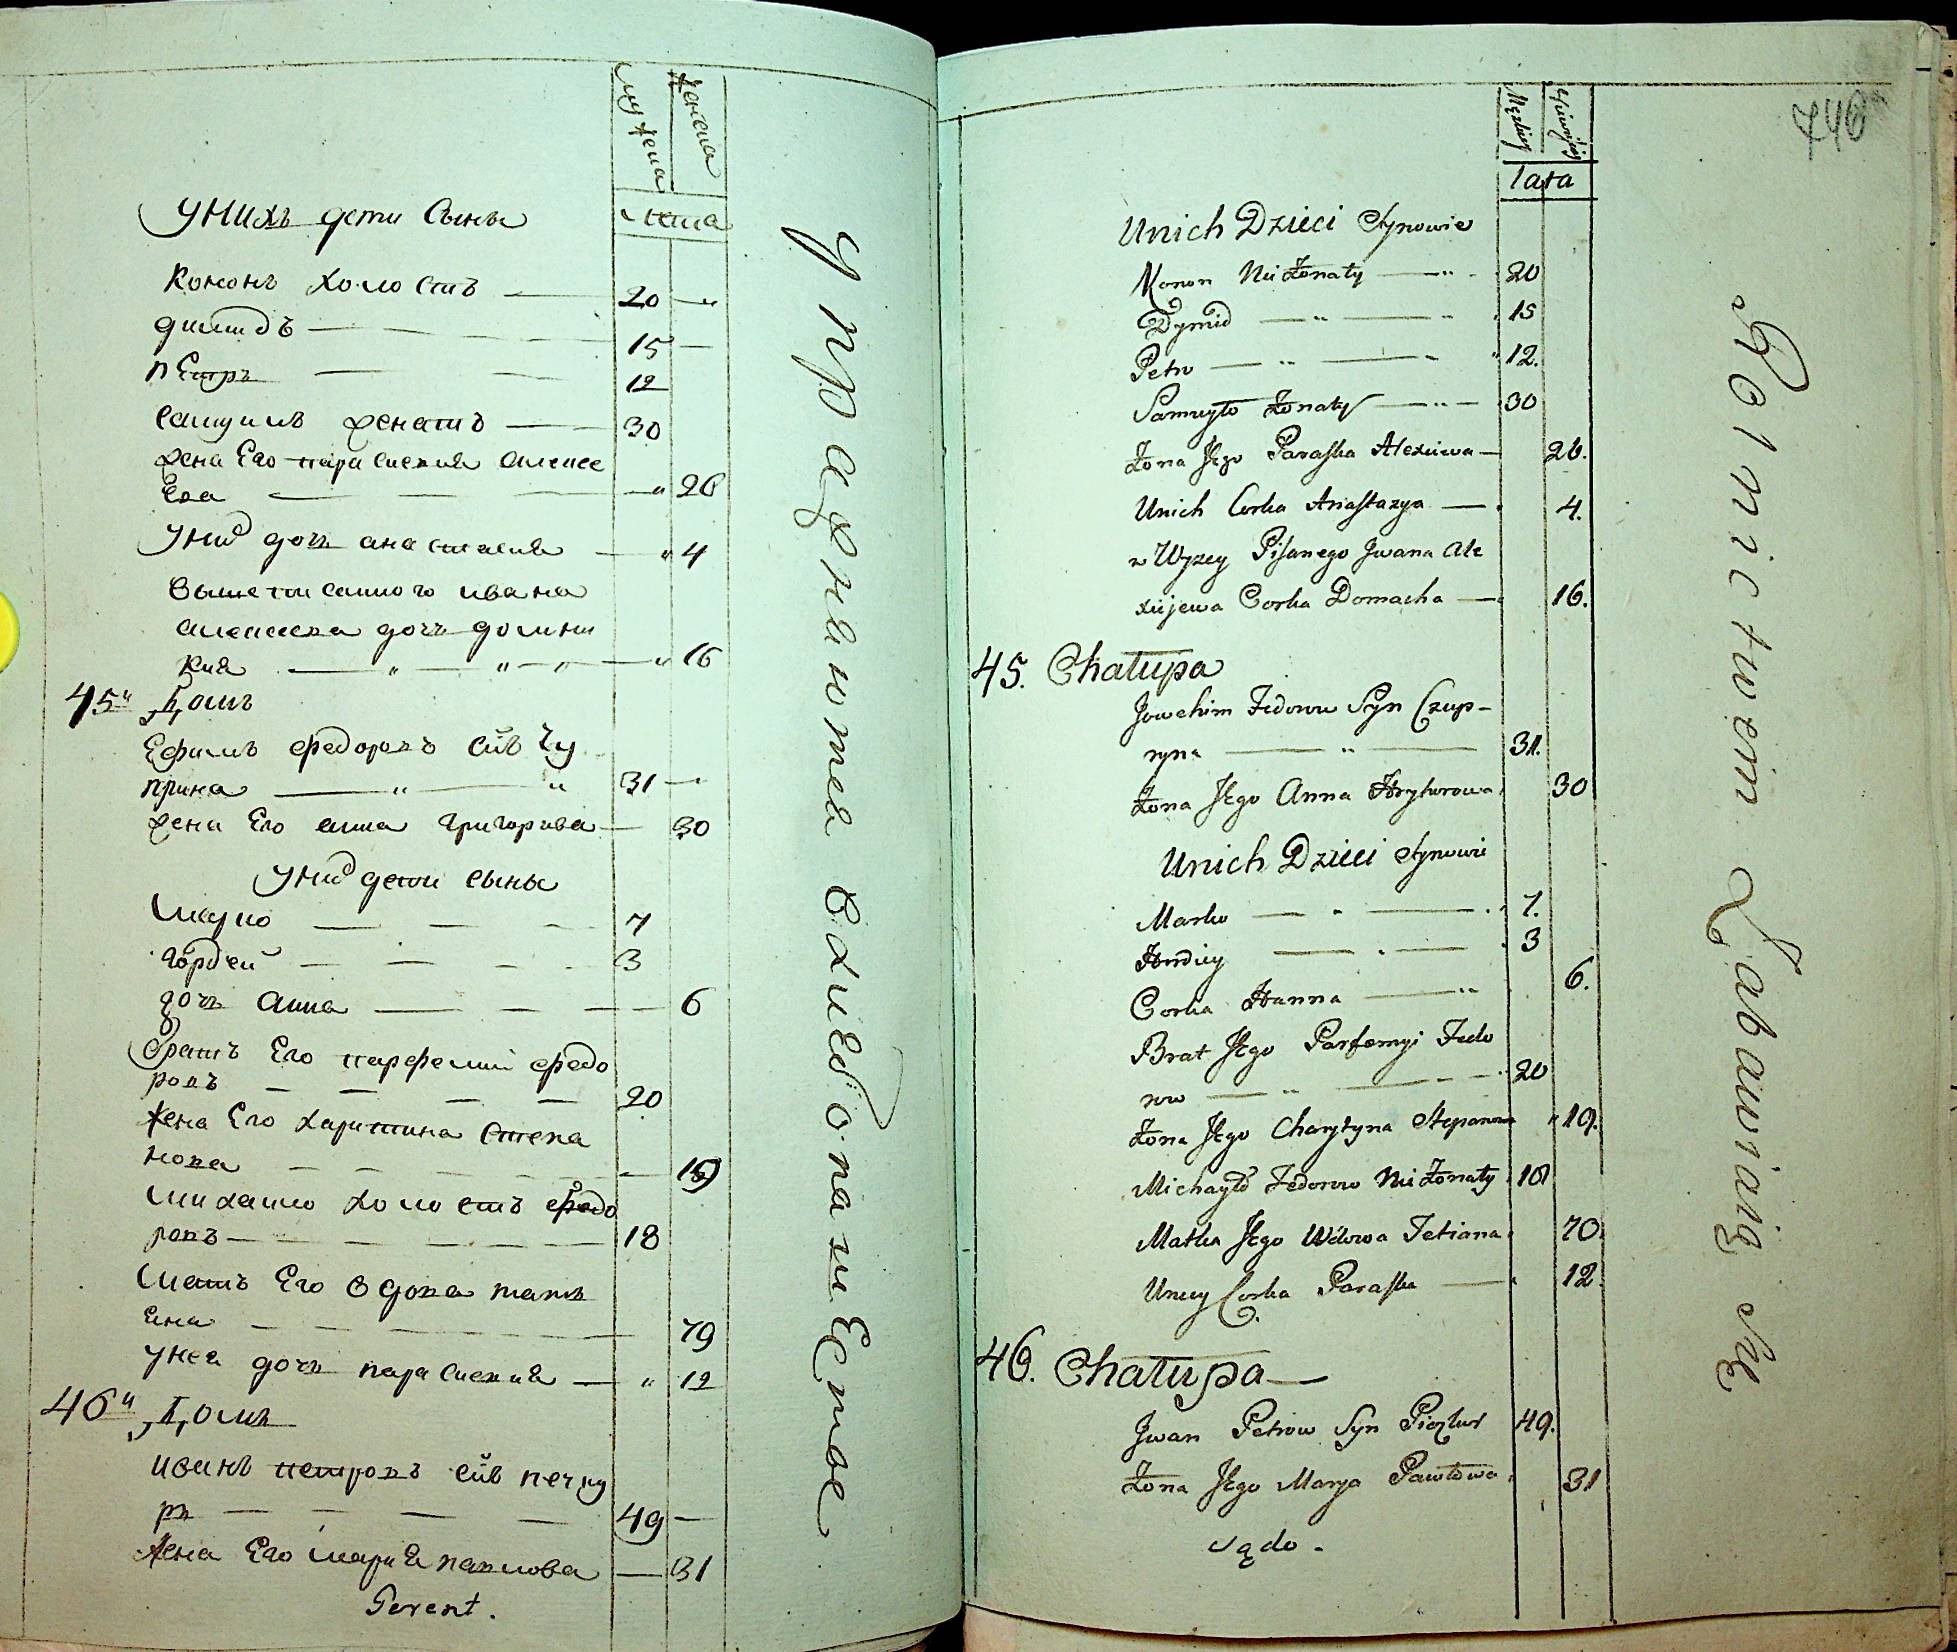 мужеска
женска
лета
у нихъ дети сыны
Кононъ холостъ — 20 — "
димидъ — 15 —
пЕтръ — 12
самуилъ женатъ — 30
жена Его параскевия алексе
Ева — " 26
у них дочь анастасия — " 4
вышеписанного ивана
алексеева дочь домни
кия — " — " — " — " 16
45" Домъ
Ефимъ федоровъ сйъ Чу
прина — " — " 31 — "
жена Его анна григорива — 30
у них дети сыны
марко — 7
гордей — 3
дочь анна — 6
братъ Его парфений федо
ровъ — 20
жена Его харитина степа
нова — 19
михаило холостъ федо
ровъ — 18
мать Его вдова тать
яна — 79
у нея дочь параскевия — " 12
46" Домъ
иванъ петровъ сйъ печку
ръ — 49 —
жена Его мария павлова — 31
Perent.
упражняются в хлебопашЕстве
746
Męzkiey
Żeńskiey
lata
Unich Dzieci Synowie
Konon Nie Żonaty — " — 20
Dymid — " — " 15
Petro — " — " 12.
Samuyło Żonaty — " — 30
Żona Jego Paraska Alexiiewa — 26.
Unich Corka Anastazya — 4.
w Wyzey Pisanego Jwana Ale
xiejewa Corka Domacha — 16.
45. Chałupa
Jowchim Fedorow Syn Czup-
ryna — " — 31.
Żona Jego Anna Hryhorowa 30
Unich Dzieci Synowie
Marko — " — 7.
Hordiey — " — 3
Corka Hanna — " 6.
Brat Jego Parfemyi Fedo
row — " — 20
Żona Jego Charytyna Stepanowa " 19.
Michayło Fedorow Nie Żonaty 18
Matka Jego Wdowa Tetiana 70.
Uniey Corka Paraska — 12.
46. Chałupa —
Jwan Petrow Syn Pieczkur 49.
Żona Jego Marya Pawłowa 31
sądo -
Rolnictwem Zabawiaią się